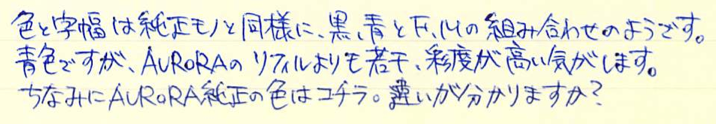 色と字幅は純正モノと同様に、黒、青とF、Mの組み合わせのようです。
青色ですが、AURORAのリフィルよりも若干、彩度が高い気がします。
ちなみにAURORA純正の色はコチラ。違いが分かりますか？